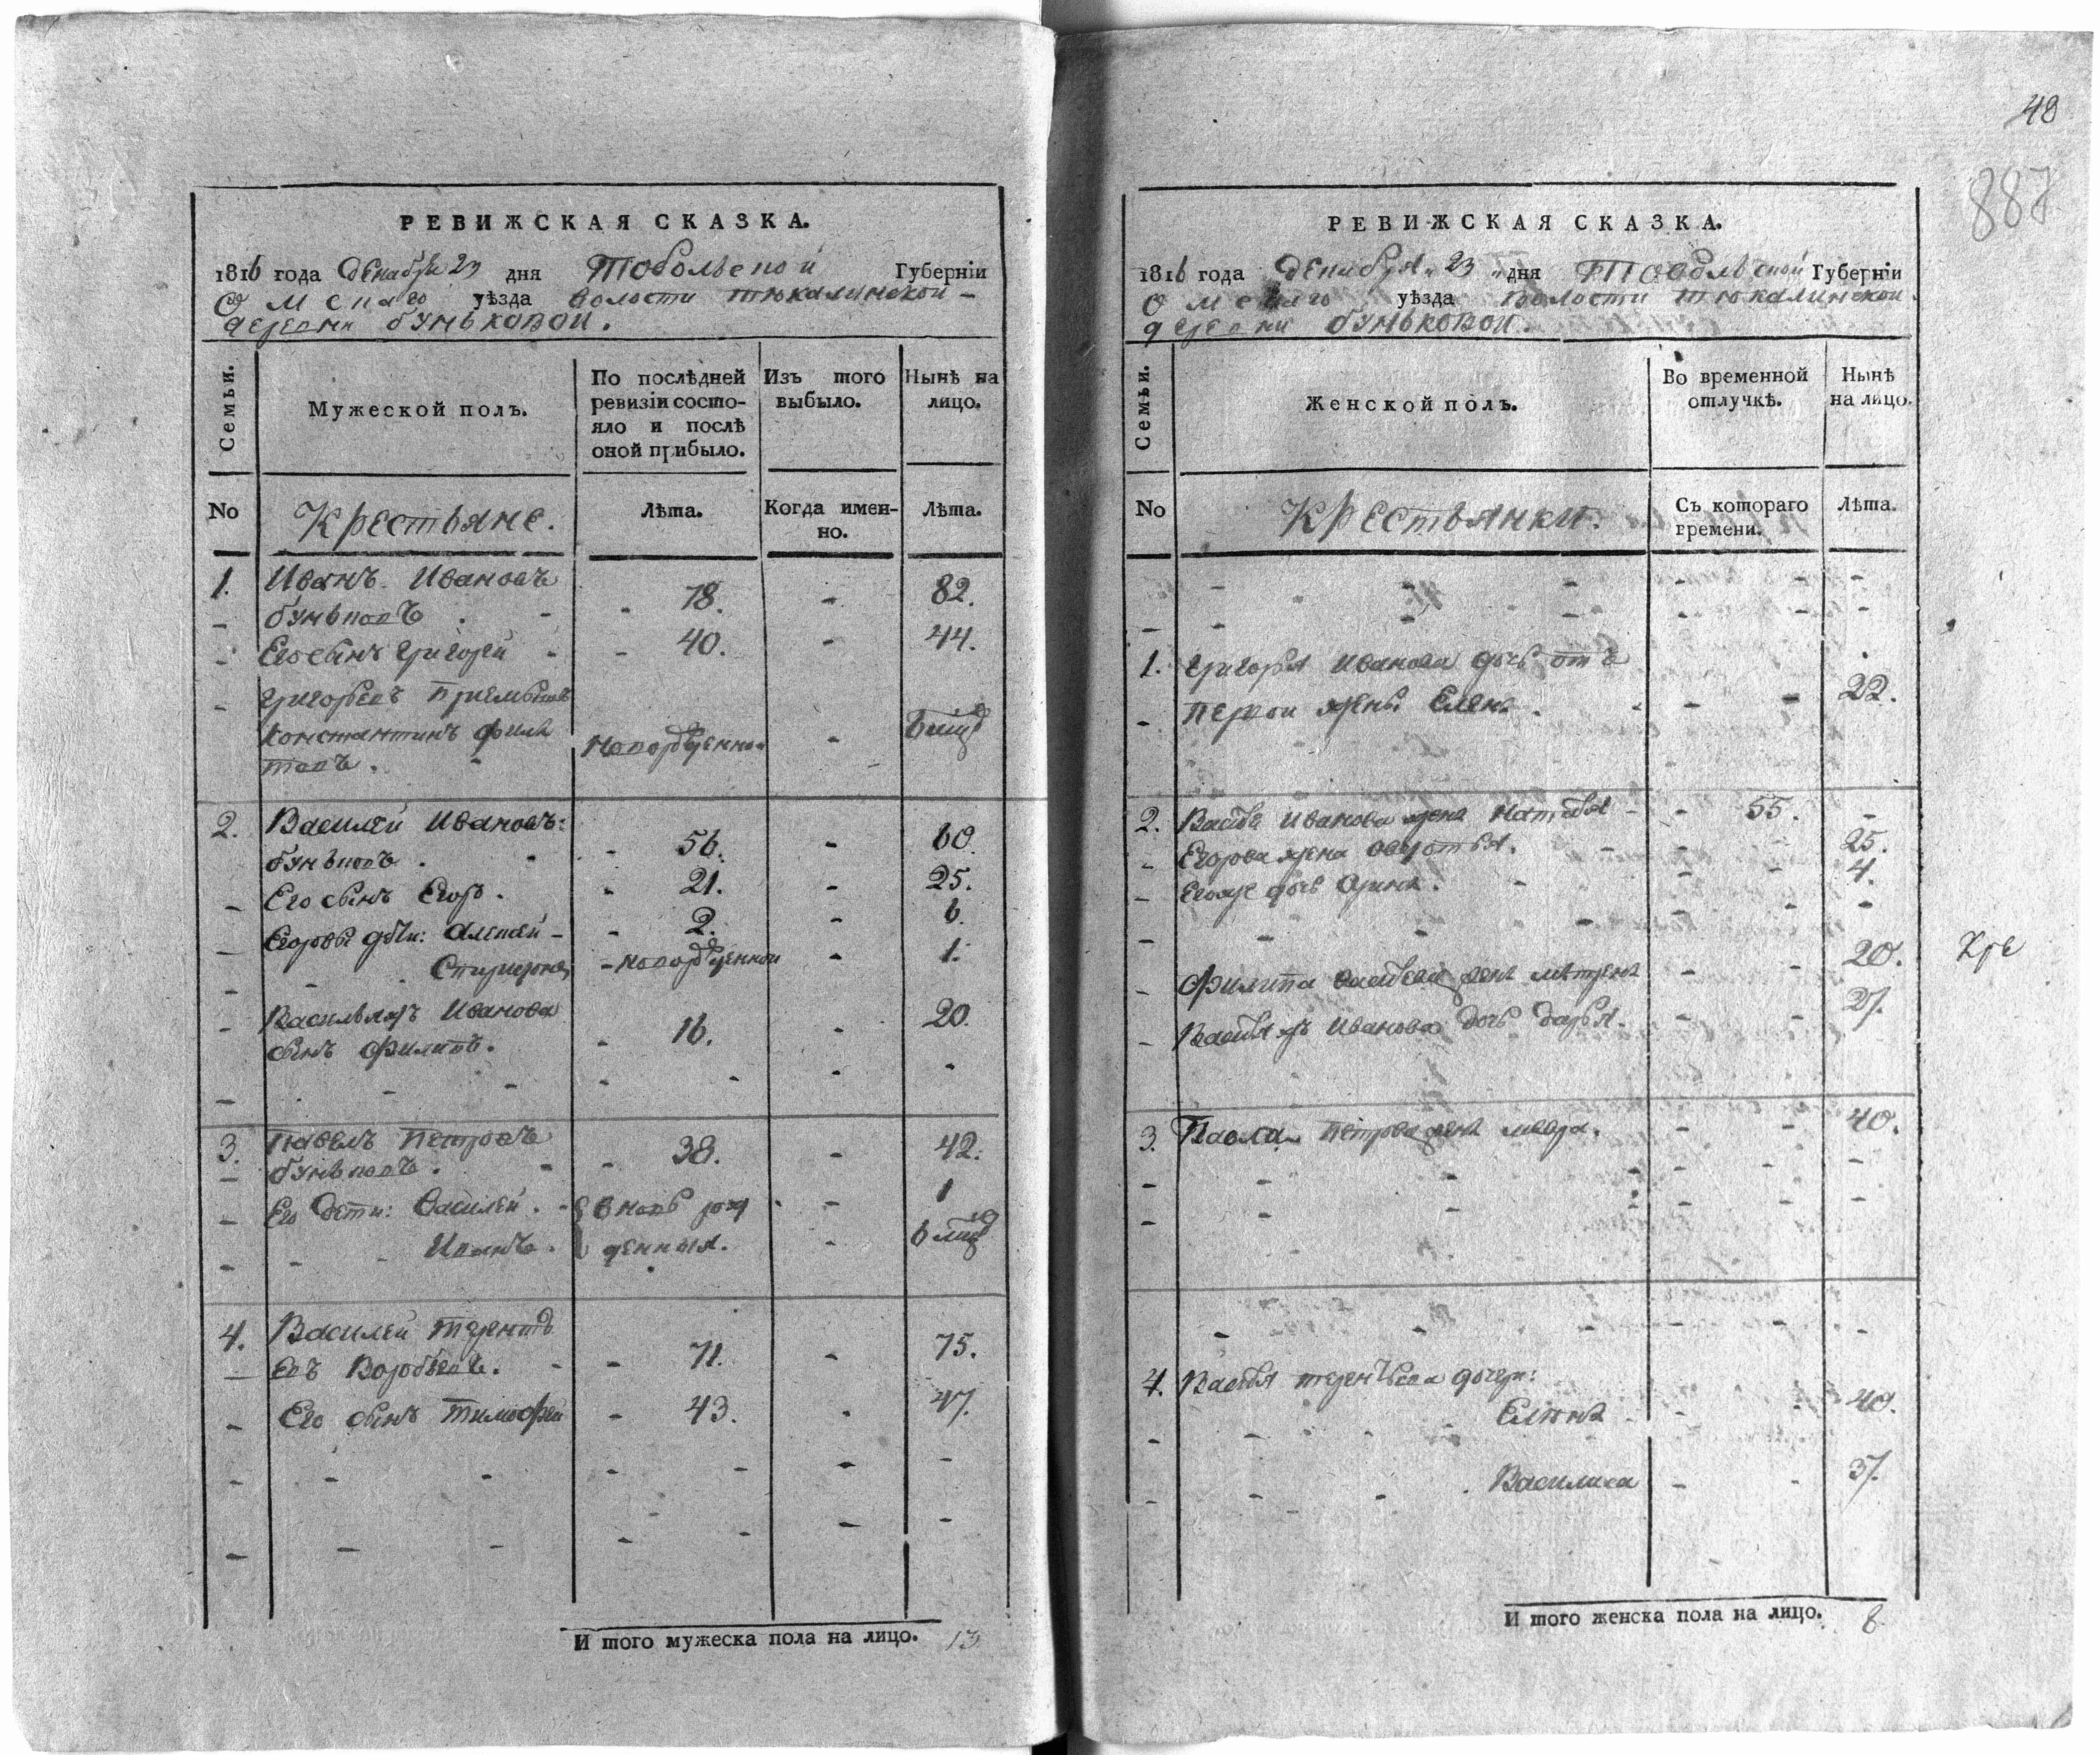 48
887
РЕВИЖСКАЯ СКАЗКА.
1816 года декабря 23 дня Тобольской Губернїи
Омскаго уѣзда волости тюкалинской
деревни бунькової.
Семьи.
Мужеской полъ.
По послѣдней
ревизїи состо-
яло и послѣ
оной прибыло.
Изъ того
выбыло.
Нынѣ на
лицо.
No
Крестьяне.
Лѣта.
Когда имен-
но.
Лѣта.
1. Иванъ Ивановъ
буньковъ . 78. 82.
Его сынъ григорей 40. 44.
григорьевъ приемышъ
Константинъ фили
повъ. новорожденной
2. Василей Ивановъ:
буньковъ. 56. 60.
Его сынъ Егоръ. 21. 25.
Егоровы дѣти: алексей 2. 6.
новорожденной 1.
Васильяжъ Иванова
сынъ Филипъ. 16. 20.
3. Павелъ Петровъ
буньковъ. 38. 42.
Его дети: Василей. вновь рож 1
Иванъ. денныя.
4. Василей терентъ
евъ Воробьевъ. 71. 75.
Его сынъ тимофей 43. 47.
И того мужеска пола на лицо. 13
РЕВИЖСКАЯ СКАЗКА.
1816 года декабря 23 дня Тобольской Губернїи
Омскаго уѣзда волости тюкалинской
деревни бунькової.
Семьи.
Женской полъ.
Во временной
отлучкѣ.
Нынѣ
на лицо.
No
Крестьянки.
Съ котораго
времени.
Лѣта.
1. григорья Иванова дочь отъ
первой жены Елена. 22.
2. Иванова жена 55.
Егорова жена 25.
Егоже дочь Орина. 4.
Филипа жена матрена 20.
Иванова дочь дарья. 27.
3. Павла Петрова жена 40.
4. терентьева дочери:
Елена 40.
Василиса 37.
И того женска пола на лицо. 8